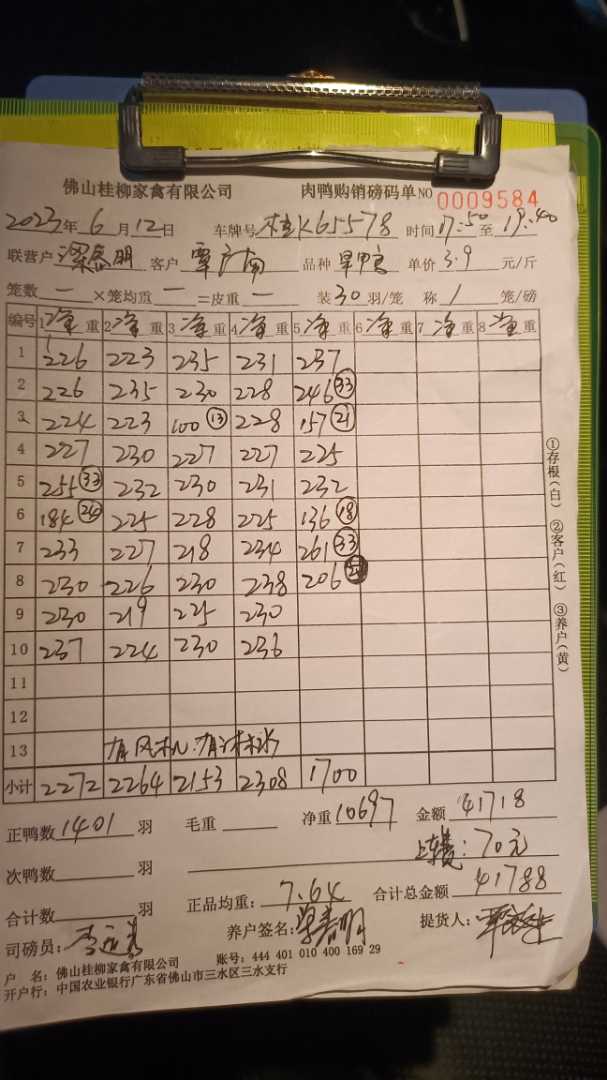 佛山桂柳家禽有限公司 肉鸭购销磅码单 NO 0009584
2023年6月12日 车牌号 桂K65578 时间 17:50 至 19:40
联营户 明 客户 覃广南 品种 单价 3.9 元/斤
笼数 一 ×笼均重 一 =皮重 一 装 30 羽/笼 称 1 笼/磅
编号 1 净重 2 净重 3 净重 4 净重 5 净重 6 净重 7 净重 8 净重
1 226 223 235 231 237
2 226 235 230 228 246 33
3 224 223 100 13 228 157 21
4 227 230 227 227 225
5 255 33 232 230 231 232
6 184 24 225 228 225 136 18
7 233 227 218 234 261 33
8 230 226 230 238 206
9 230 219 225 230
10 237 224 230 236
11
12
13 有风机.有
小计 2272 2264 2153 2308 1700
正鸭数 1401 羽 毛重 净重 10697 金额 41718
上车费：70元
次鸭数 羽
合计数 羽 正品均重： 7.64 合计总金额 41788
司磅员： 养户签名： 明 提货人：
户 名：佛山桂柳家禽有限公司 账号：444 401 010 400 169 29
开户行：中国农业银行广东省佛山市三水区三水支行
①存根（白） ②客户（红） ③养户（黄）